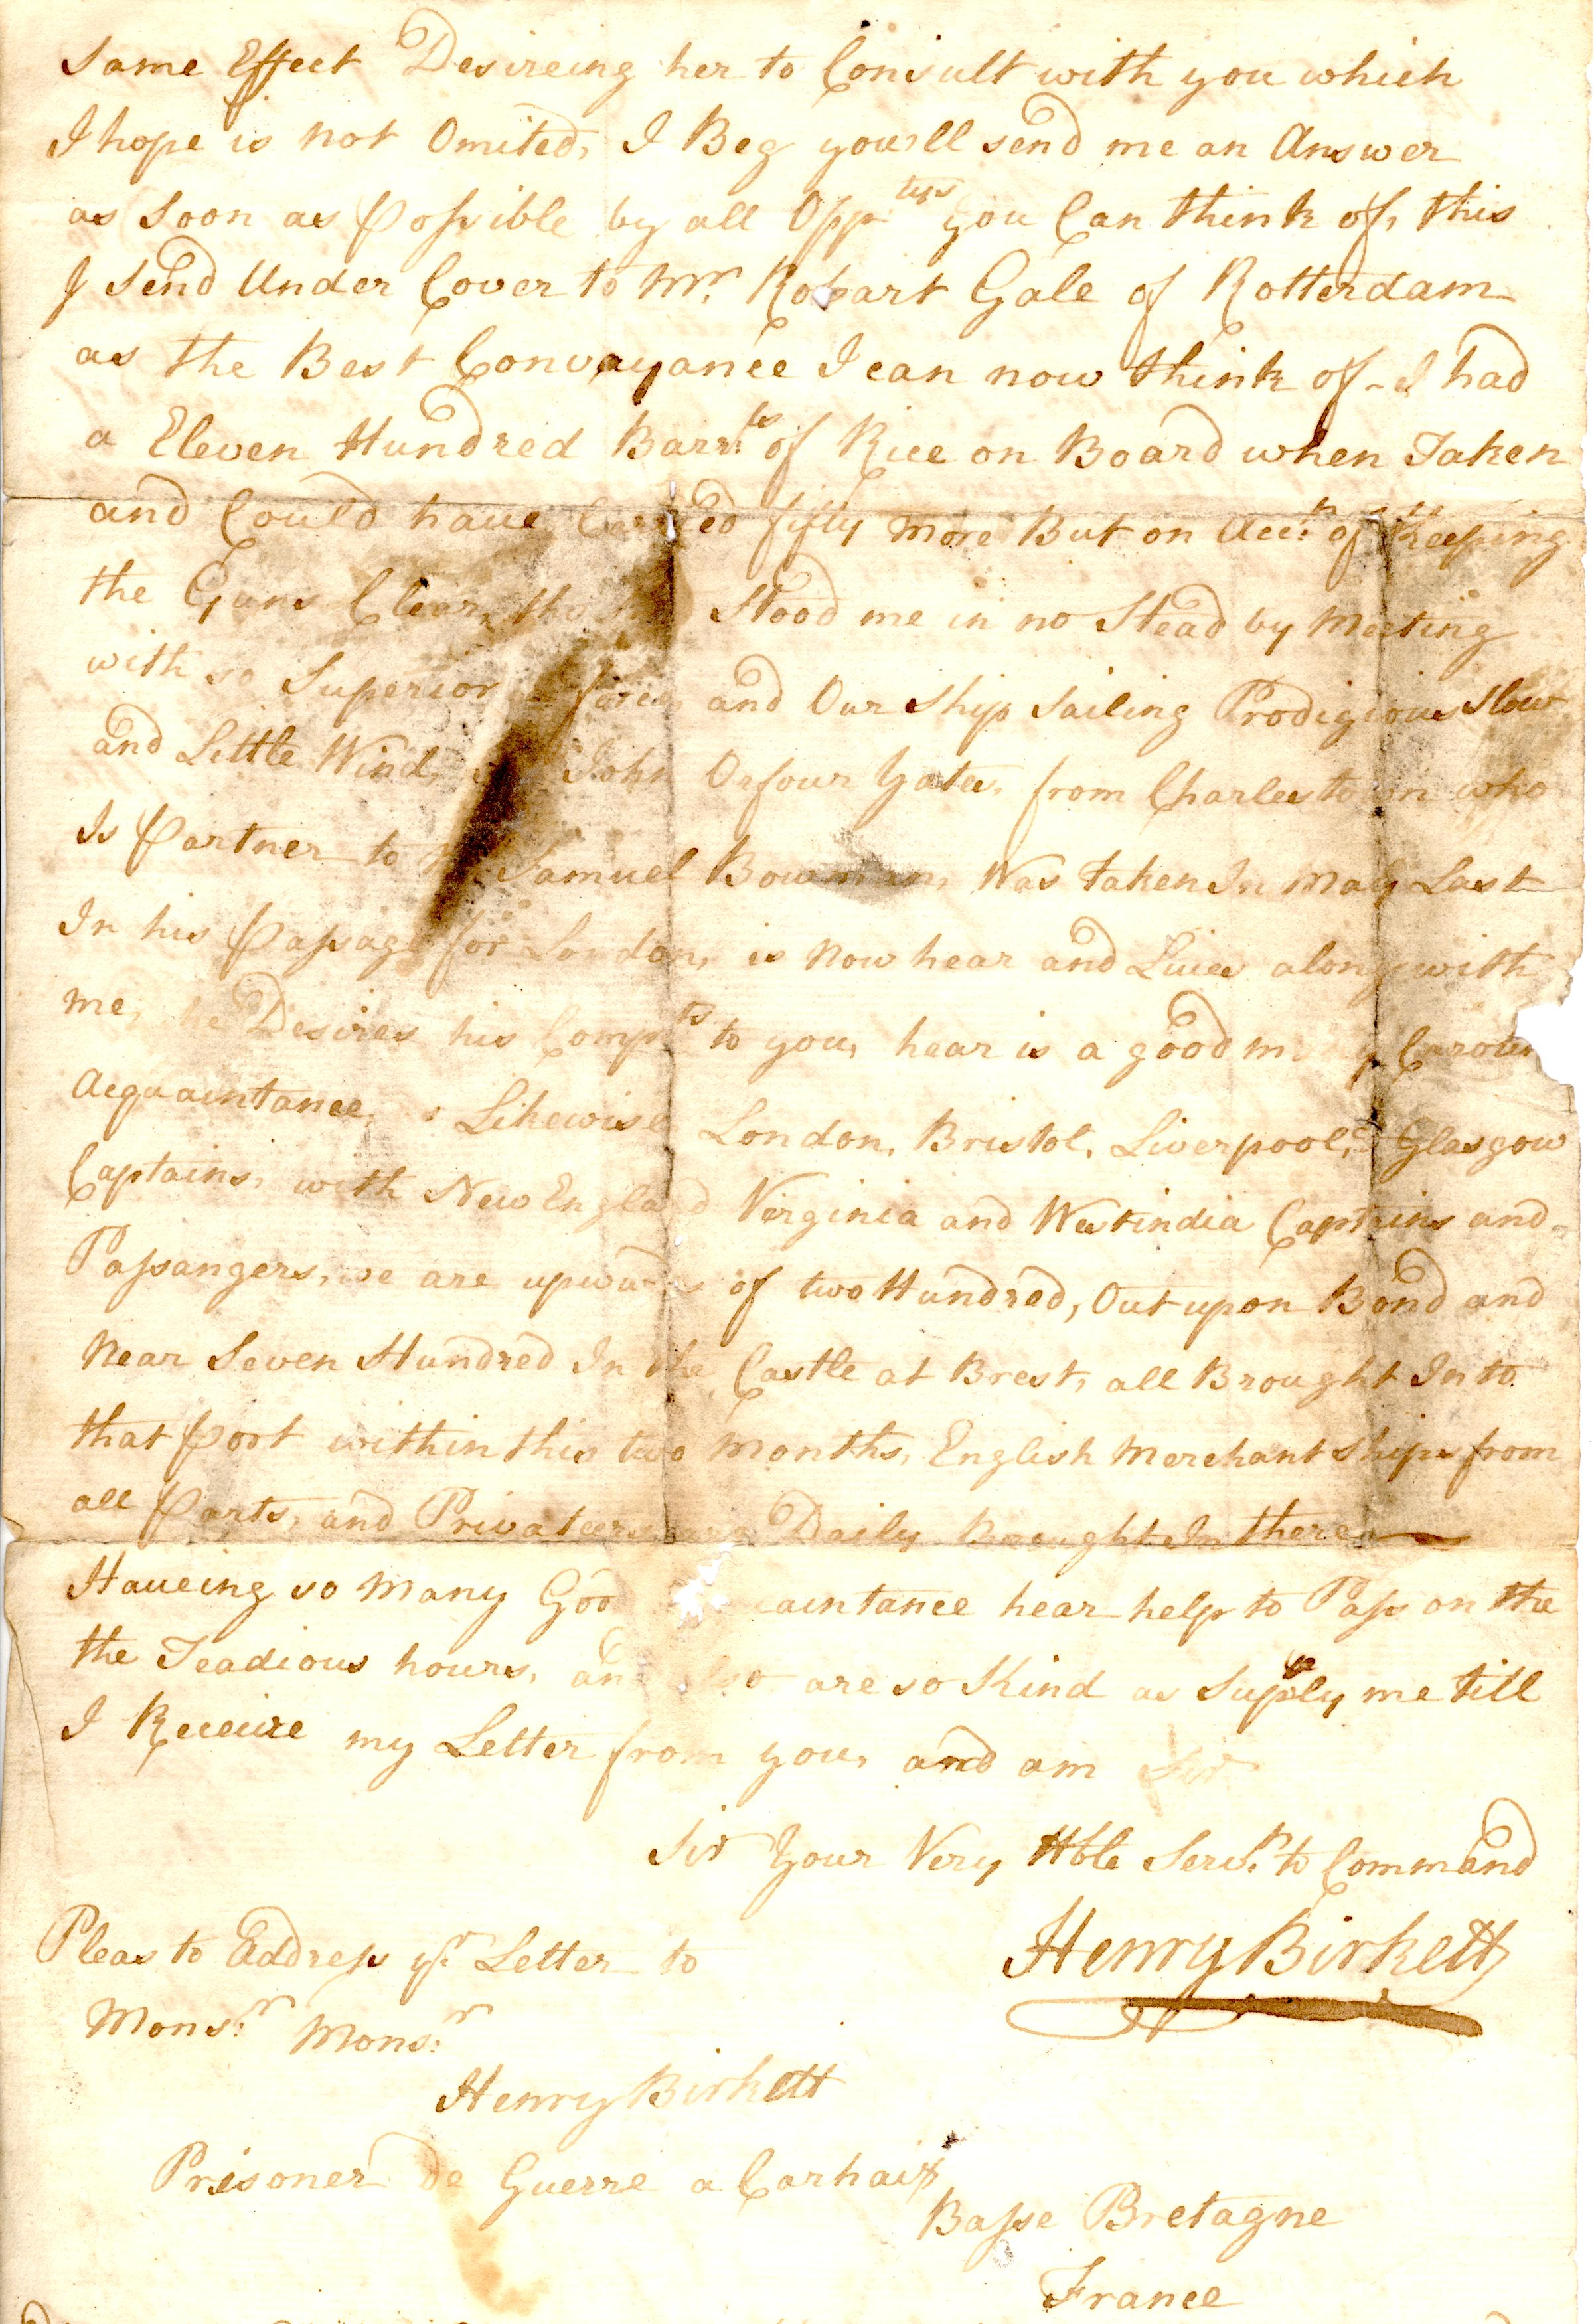 Same Effect Desireing her to Consult with you which
I hope is not Omited, I Beg you'll send me an Answer
as Soon as Possible by all Opp.tys you Can think of, this
I Send Under Cover to Mr. Robart Gale of Rotterdam
as the Best Convayance I can now think of - I had
a Eleven Hundred Barr.ls of Rice on Board when Taken
and Could have Carried fifty more But on Acc.t of Keeping
the Guns Clear, tho Stood me in no Stead by Meeting
with so Superior force, and Our Ship Sailing Prodigious Slow
and Little Wind, John Orfour Yates, from Charlestown who
Is Partner to Mr. Samuel Bowman, Was taken In May Last
In his Passage for London, is Now hear and Lives along with
me, he Desires his Comp.ts to you, hear is a good many
Acquaintance, Likewise London, Bristol, Liverpool, Glasgow
Captains, with New England Virginia and Westindia Captains and
Passangers, we are upwards of two Hundred, Out upon Bond and
Near Seven Hundred In the Castle at Brest, all Brought In to
that Port within this two Months, English Merchant Ships from
all Parts, and Privateers are Daily Brought In there
Haveing so Many Good aintance hear help to Pass on the
the Teadious hours, and also are so Kind as Supply me till
I Receive my Letter from you, and am Sir
Sir Your Very Hble Serv.t to Command
Henry Birkett
Pleas to Eddress y.r Letter to
Mons.r Mons.r
Henry Birkett
Prisoner de Guerre a Carhaix
Basse Bretagne
France